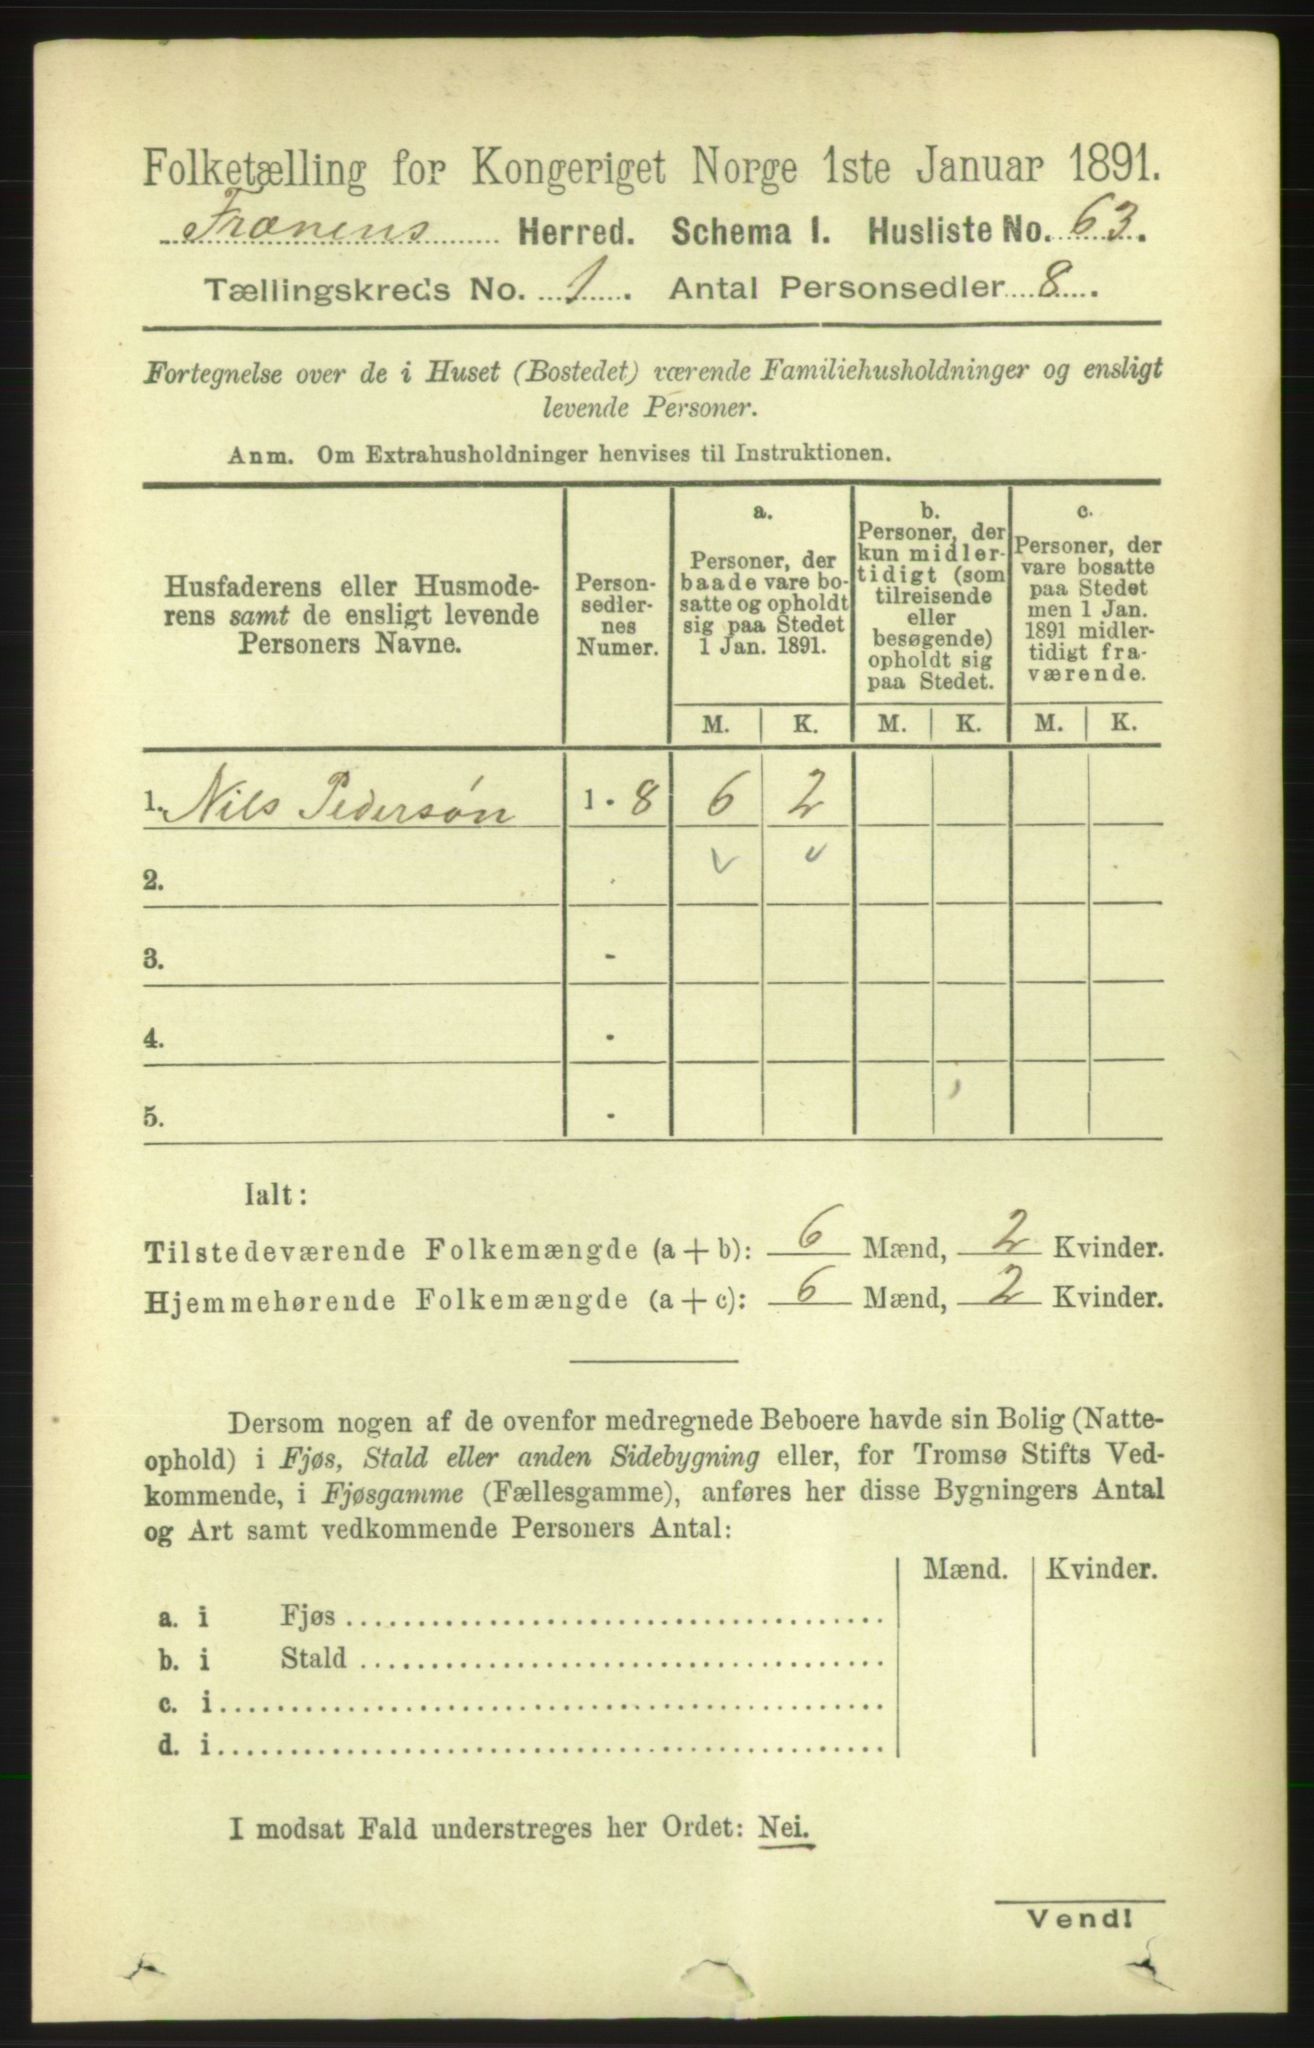 Folketælling for Kongeriget Norge 1ste Januar 1891.
Frænens Herred. Schema I. Husliste No. 63.
Tællingskreds No. 1. Antal Personsedler 8.
Fortegnelse over de i Huset (Bostedet) værende Familiehusholdninger og ensligt
levende Personer.
Anm. Om Extrahusholdninger henvises til Instruktionen.
Husfaderens eller Husmode-
rens samt de ensligt levende
Personers Navne.
Person-
sedler-
nes
Numer.
a.
Personer, der
baade vare bo-
satte og opholdt
sig paa Stedet
1 Jan. 1891.
b.
Personer, der
kun midler-
tidigt (som
tilreisende
eller
besøgende)
opholdt sig
paa Stedet.
c.
Personer, der
vare bosatte
paa Stedet
men 1 Jan.
1891 midler-
tidigt fra-
værende.
M. K. M. K. M. K.
1. Nils Pedersøn 1 - 8 6 2
2. -
3. -
4. -
5. -
Ialt:
Tilstedeværende Folkemængde (a + b): 6 Mænd, 2 Kvinder.
Hjemmehørende Folkemængde (a + c): 6 Mænd, 2 Kvinder.
Dersom nogen af de ovenfor medregnede Beboere havde sin Bolig (Natte-
ophold) i Fjøs, Stald eller anden Sidebygning eller, for Tromsø Stifts Ved-
kommende, i Fjøsgamme (Fællesgamme), anføres her disse Bygningers Antal
og Art samt vedkommende Personers Antal:
Mænd. Kvinder.
a. i Fjøs
b. i Stald
c. i
d. i
I modsat Fald understreges her Ordet: Nei.
Vend!